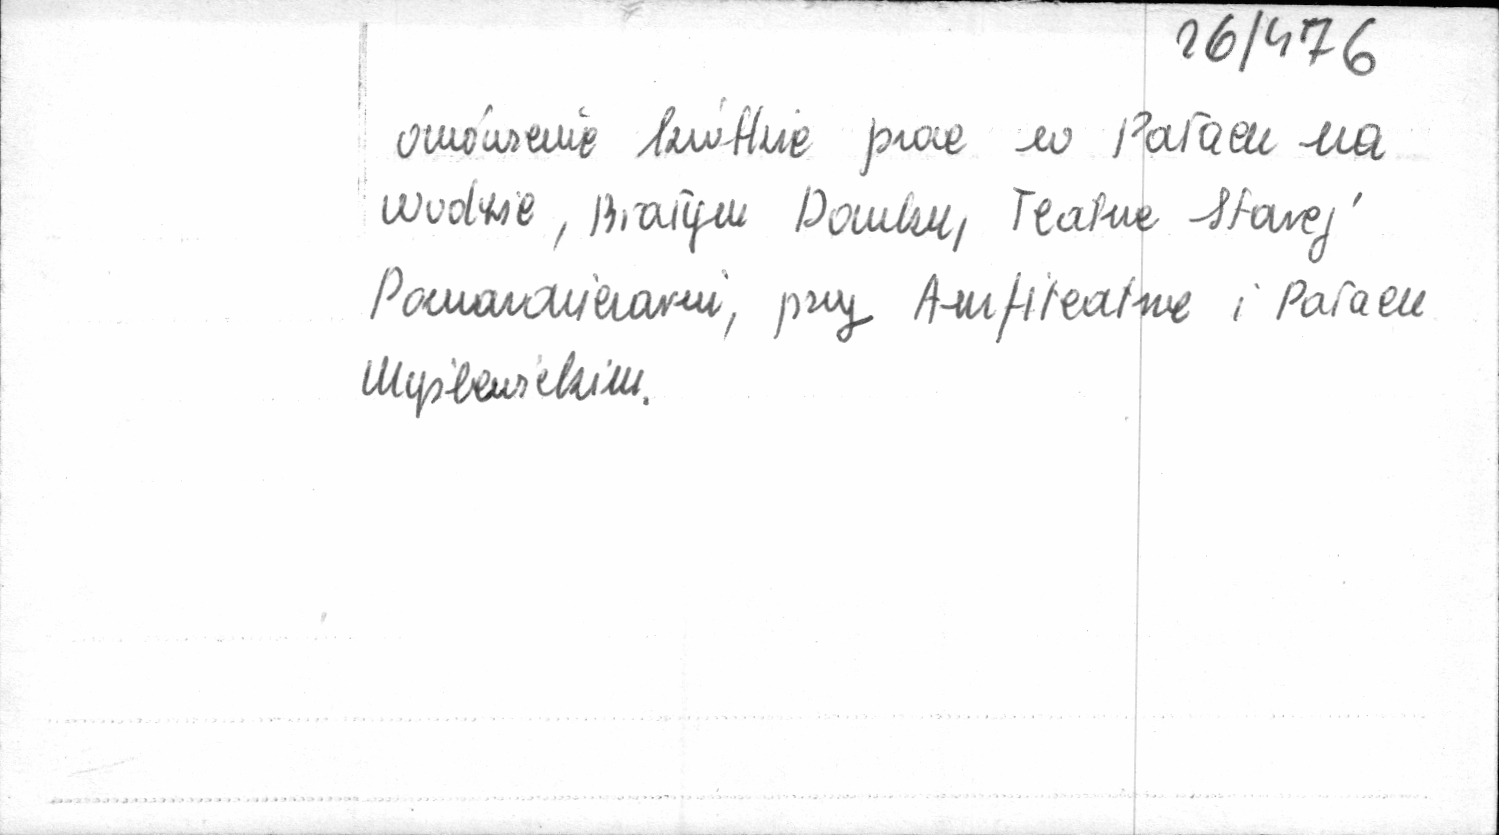 26/476
omówienie krótkie prac w Pałacu na
wodzie, Białym Domku, Teatrze Starej
Pomarańczarni, przy Amfiteatrze i Pałacu
Myślewickim.